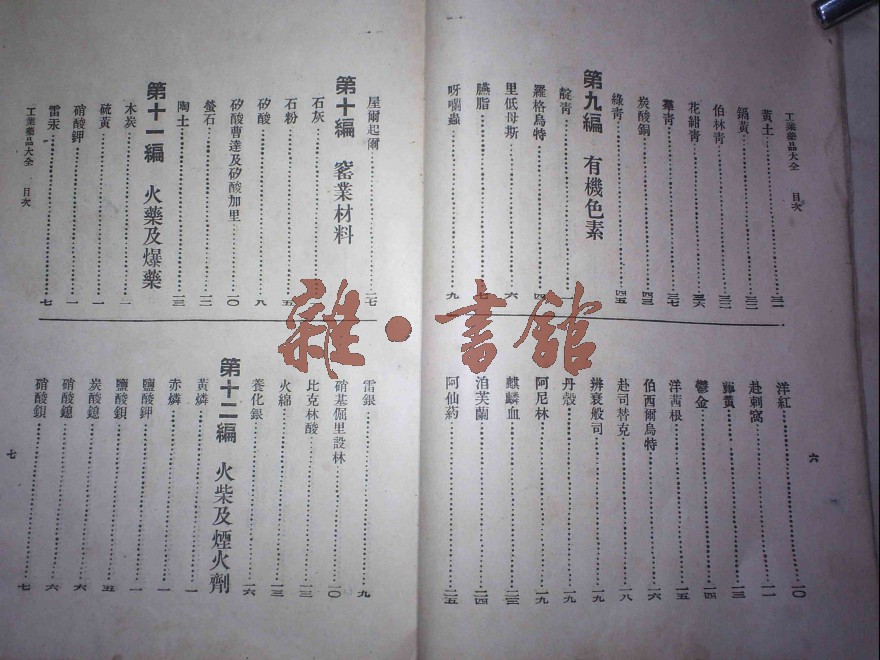 工業藥品大全 目次
黃土……三一
鎘黃……三二
伯林青……三三
花紺青……三六
羣青……三七
炭酸銅……四三
綠青……四五
第九編 有機色素
靛青……一
羅格烏特……四
里低母斯……六
臙脂……七
呀囒蟲……九
洋紅……一〇
赴刺窩……一一
籐黃……一三
鬱金……一四
洋茜根……一五
伯西爾烏特……一六
赴司替克……一八
辨衰般司……一九
丹殼……一九
阿尼林……一九
麒麟血……二三
泊芙蘭……二四
阿仙葯……二五
六
屋爾起爾……二七
第十編 窰業材料
石灰……一
石粉……五
矽酸……八
矽酸曹達及矽酸加里……一〇
螢石……一二
陶土……一三
第十一編 火藥及爆藥
木炭……一
硫黃……一
硝酸鉀……一
雷汞……七
工業藥品大全 目次
雷銀……九
硝基倔里設林……一〇
比克林酸……一三
火綿……一三
養化銀……一六
第十二編 火柴及煙火劑
黃燐……一
赤燐……一
鹽酸鉀……一
鹽酸鋇……五
炭酸鎴……六
硝酸鎴……六
硝酸鋇……七
七
雜·書館